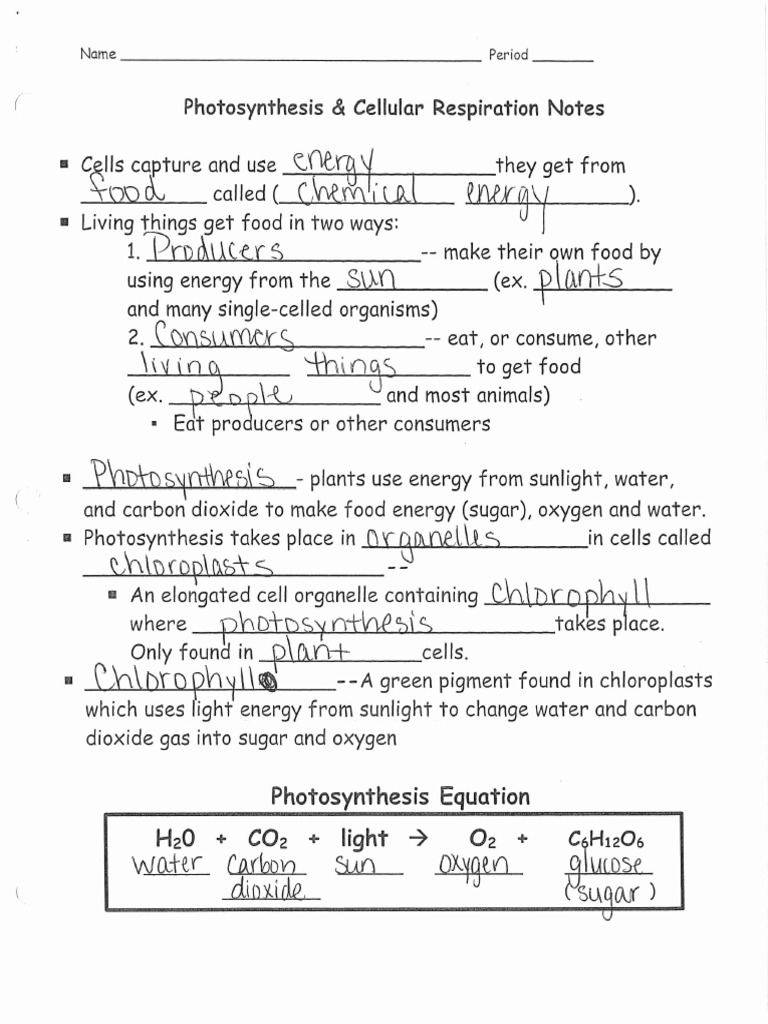 Name ________ Period ________
Photosynthesis & Cellular Respiration Notes
▪ Cells capture and use energy they get from
food called (chemical energy).
▪ Living things get food in two ways:
1. Producers -- make their own food by
using energy from the sun (ex. plants
and many single-celled organisms)
2. Consumers -- eat, or consume, other
living things to get food
(ex. people and most animals)
▪ Eat producers or other consumers
▪ Photosynthesis - plants use energy from sunlight, water,
and carbon dioxide to make food energy (sugar), oxygen and water.
▪ Photosynthesis takes place in organelles in cells called
chloroplasts --
▪ An elongated cell organelle containing Chlorophyll
where photosynthesis takes place.
Only found in plant cells.
▪ Chlorophyll --A green pigment found in chloroplasts
which uses light energy from sunlight to change water and carbon
dioxide gas into sugar and oxygen
Photosynthesis Equation
H₂O + CO₂ + light → O₂ + C₆H₁₂O₆
water Carbon sun oxygen glucose
dioxide (sugar)